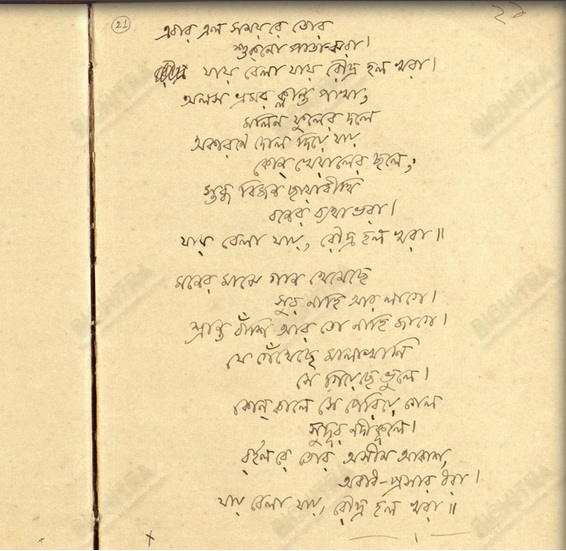 21
22
এবার এল সময় রে তোর
শুকনো পাতা-ঝরা।
যায় বেলা যায় রৌদ্র হল খরা।
অলস ভ্রমর ক্লান্ত পাখা,
মলিন ফুলের দলে
অকারণে দোল দিয়ে যায়
কোন্ খেয়ালের ছলে,
স্তব্ধ বিজন ছায়াবীথি
বনের ব্যথাভরা।
যায় বেলা যায়, রৌদ্র হল খরা॥
মনের মাঝে গান থেমেছে
সুর নাহি আর লাগে।
শ্রান্ত বাঁশি আর তো নাহি জাগে।
যে গেঁথেছে মালাখানি
সে গিয়েছে ভুলে।
কোন্ কালে সে পেরিয়ে গেল
সুদূর নদীকূলে।
রইল রে তোর অসীম আকাশ,
অবাধ-প্রসার ধরা।
যায় বেলা যায়, রৌদ্র হল খরা॥
BICHITRA